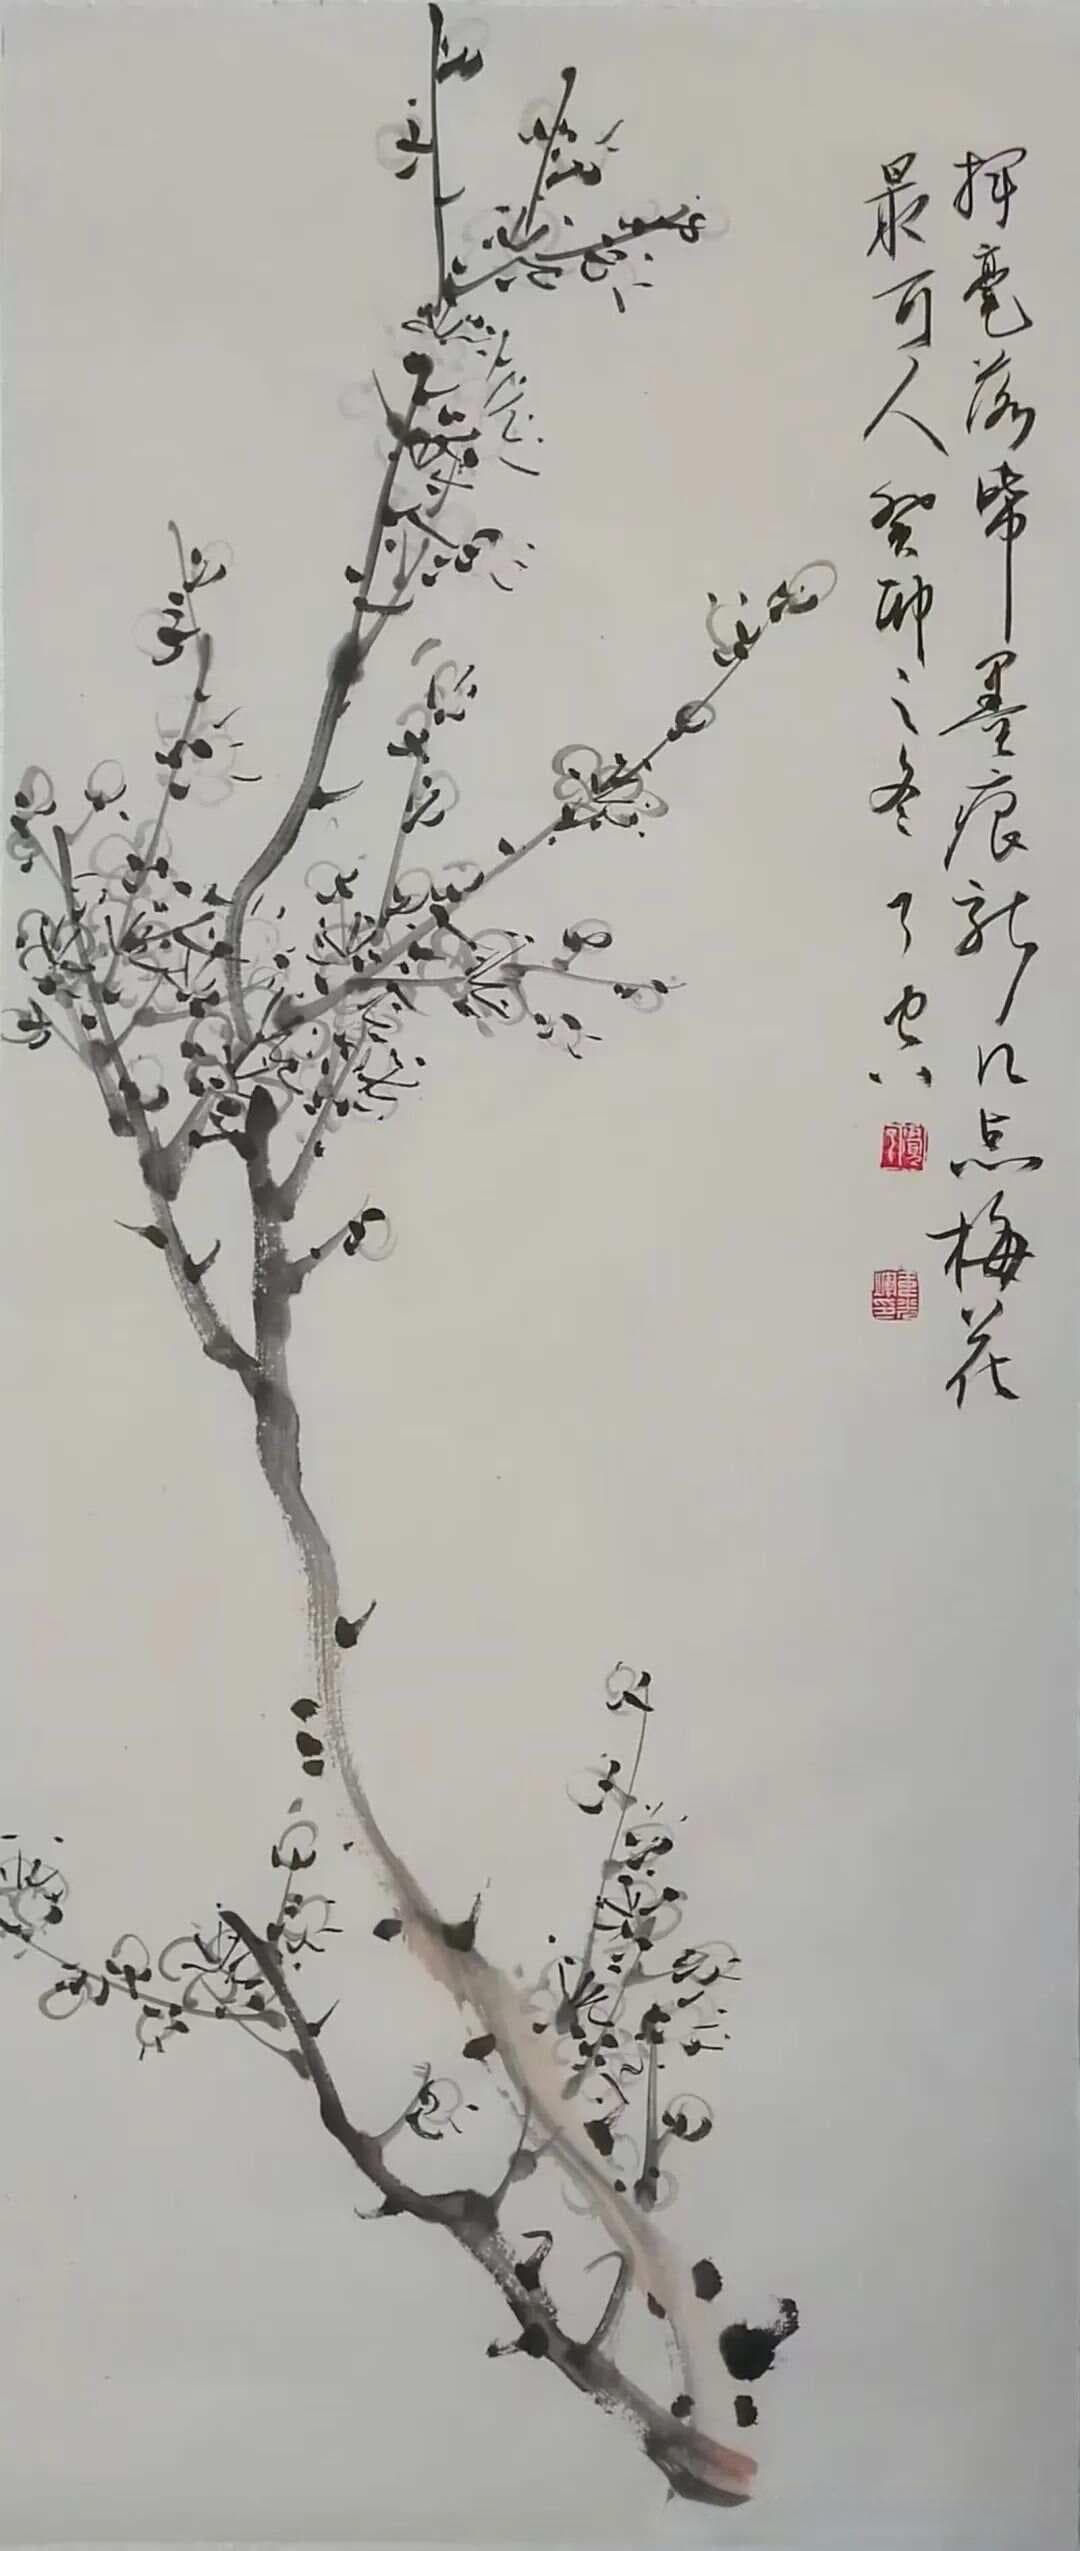 挥毫落纸墨痕新几点梅花
最可人癸卯之冬